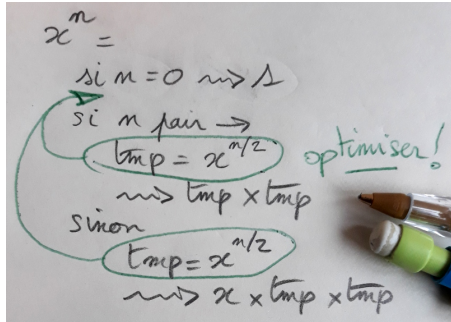 xⁿ =
si n = 0 ⇝ 1
si n pair →
tmp = x^(n/2)
optimiser !
⇝ tmp × tmp
sinon
tmp = x^(n/2)
⇝ x × tmp × tmp